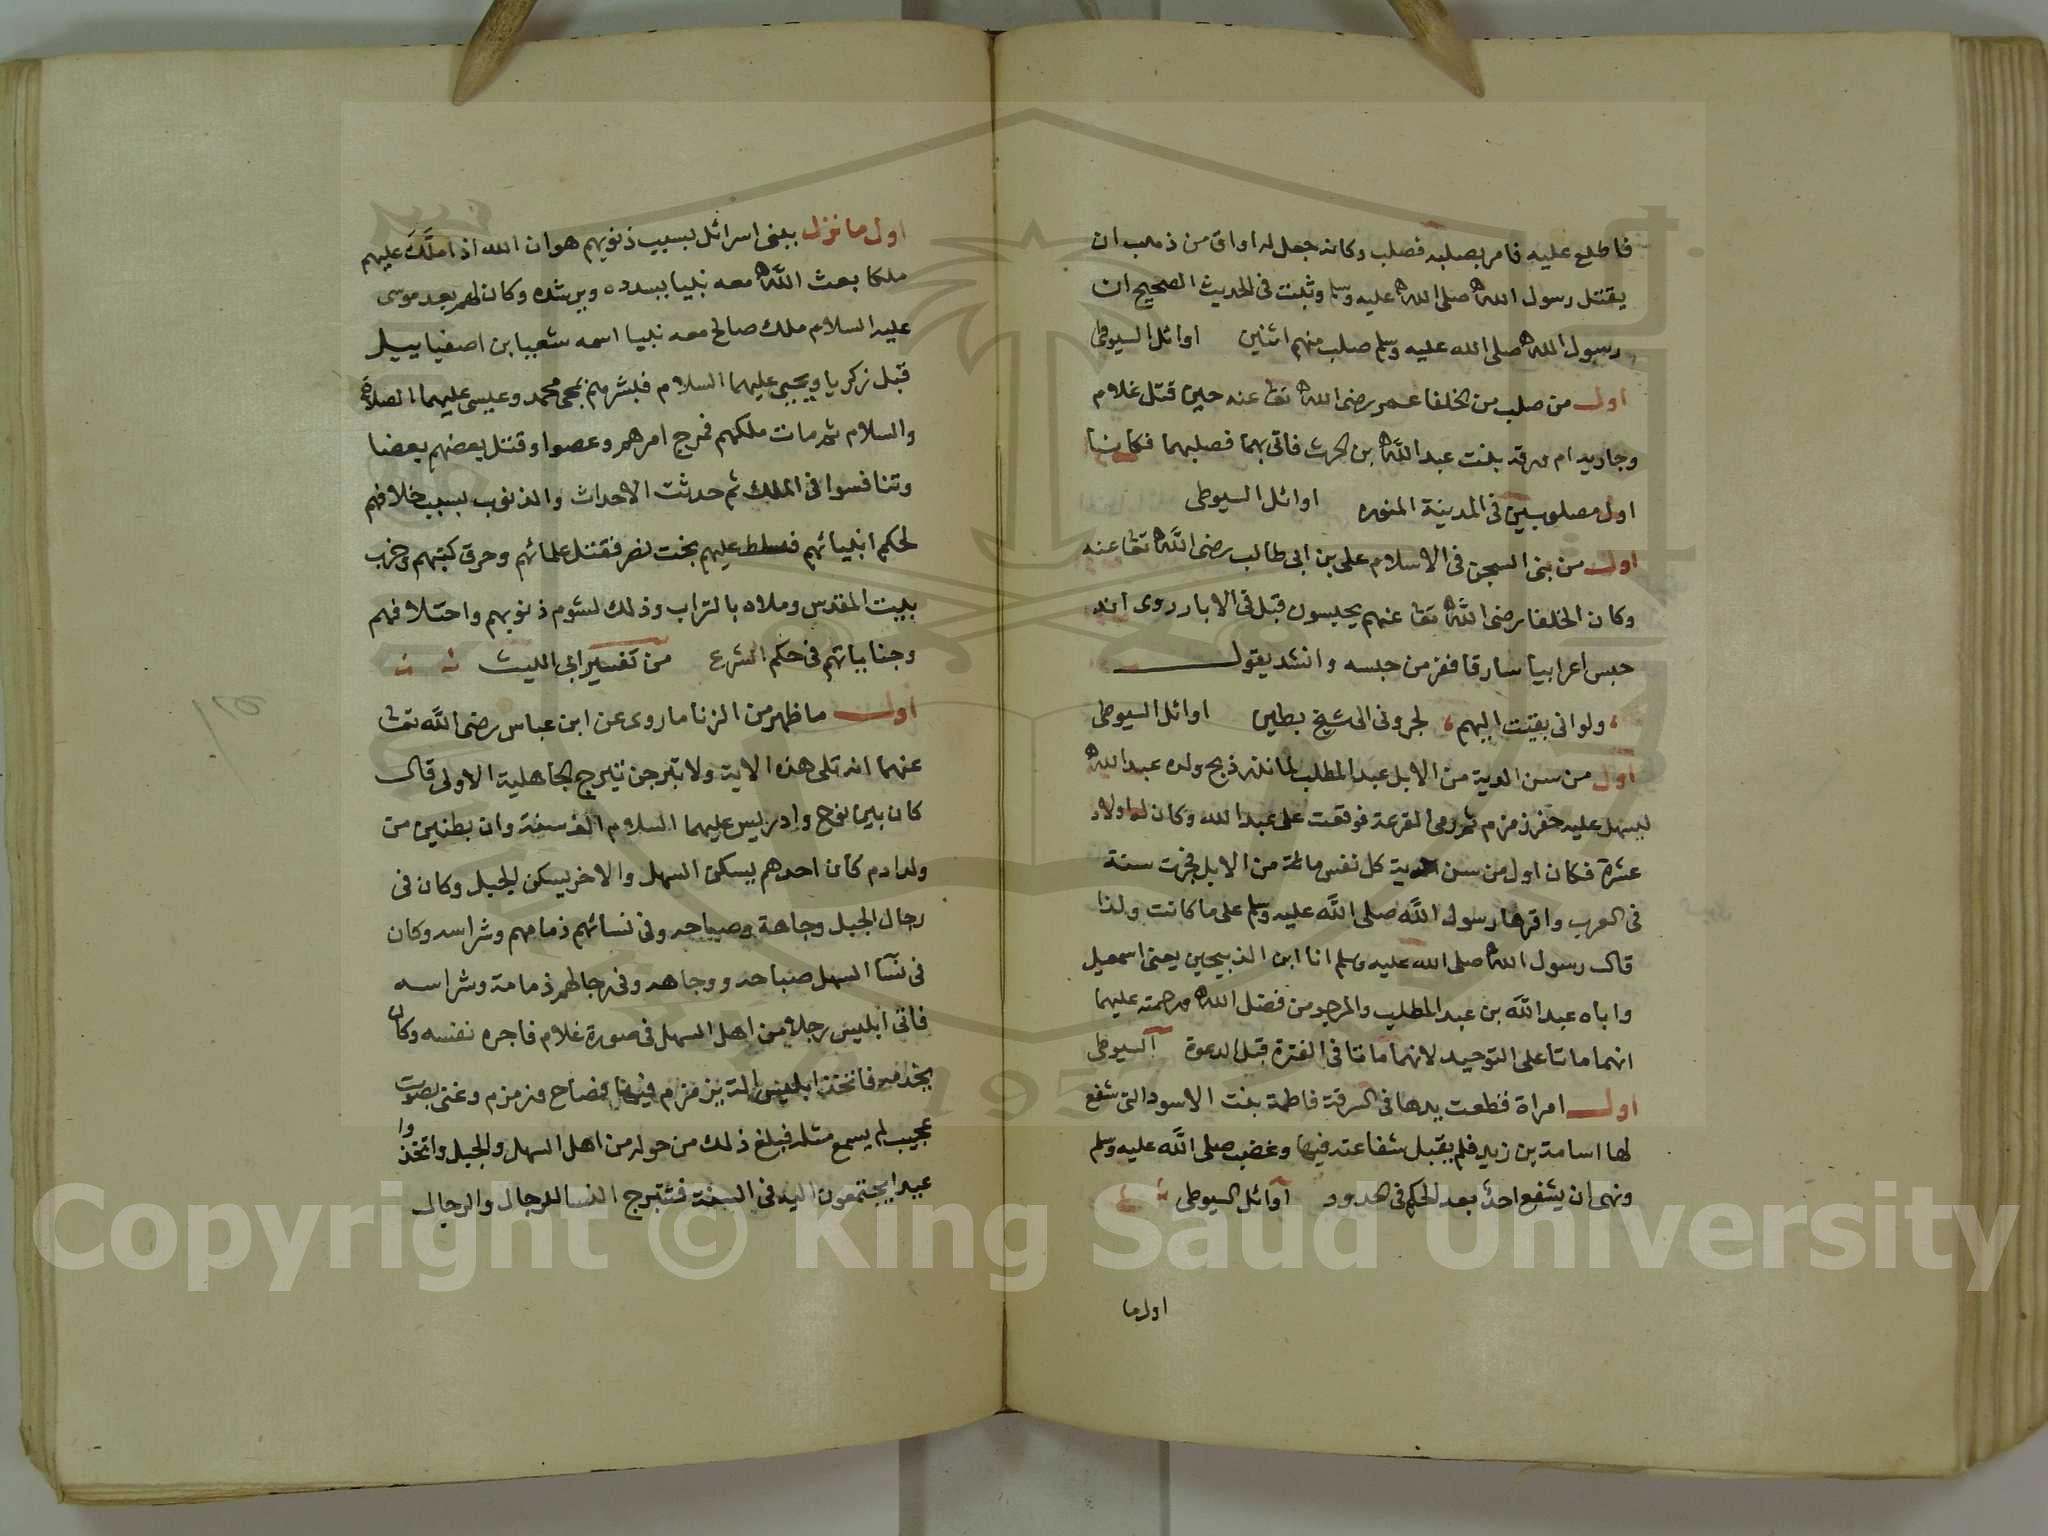 فاطلع عليه فامر بصلبه فصلب وكان جعل له اواق من ذهب ان
يقتل رسول الله صلى الله عليه وسلم وثبت في الحديث الصحيح ان
رسول الله صلى الله عليه وسلم صلب منهم اثنين اوائل السيوطى
اول من صلب من الخلفا عمر رضى الله تعا عنه حين قتل غلام
وجارية ام ورقة بنت عبد الله بن الحرث فاتى بهما فصلبهما فكانا
اول مصلوبين فى المدينة المنوره اوائل السيوطى
اول من بنى السجن فى الاسلام على بن ابى طالب رضى الله تعا عنه
وكان الخلفا رضى الله تعا عنهم يحبسون قبل فى الابار روى انه
حبس اعرابيا سارقا ففر من حبسه وانشد يقول
ولو انى بقيت اليهم لجرونى الى شيخ بطين اوائل السيوطى
اول من سن الدية من الابل عبد المطلب لما نذر ذبح ولده عبد الله
ليسهل عليه حفر زمزم ثم رمى القرعة فوقعت على عبد الله وكان له اولاد
عشرة فكان اول من سن دية كل نفس مائة من الابل فجرت سنة
فى العرب واقرها رسول الله صلى الله عليه وسلم على ما كانت ولذا
قال رسول الله صلى الله عليه وسلم انا ابن الذبيحين يعنى اسمعيل
واباه عبد الله بن عبد المطلب والمرجو من فضل الله ورحمته عليهما
انهما ماتا على التوحيد لانهما ماتا فى الفترة قبل الدعوة السيوطى
اول امراة قطعت يدها فى السرقة فاطمة بنت الاسود التى شفع
لها اسامة بن زيد فلم يقبل شفاعته فيها وغضب صلى الله عليه وسلم
ونهى ان يشفع احد بعد الحكم فى الحدود اوائل السيوطى
اول ما
اول ما نزل ببنى اسرائل بسبب ذنوبهم هو ان الله اذا ملك عليهم
ملكا بعث الله معه نبيا يسدده ويرشده وكان لهم بعد موسى
عليه السلام ملك صالح معه نبيا اسمه شعيا بن اصفيا
قبل زكريا ويحيى عليهما السلام فبشرهم بمحمد وعيسى عليهما الصلاة
والسلام ثم مات ملكهم فمرج امرهم وعصوا وقتل بعضهم بعضا
وتنافسوا فى الملك ثم حدثت الاحداث والذنوب بسبب خلافهم
لحكم انبيائهم فسلط عليهم بخت نصر فقتل علمائهم وحرق كتبهم وخرب
بيت المقدس وملاه بالتراب وذلك لشوم ذنوبهم واختلافهم
وجناياتهم فى حكم الشرع من تفسير ابى الليث
اول ما ظهر من الزنا ما روى عن ابن عباس رضى الله تعا
عنهما انه تلى هذه الاية ولا تبرجن تبرج الجاهلية الاولى قال
كان بين نوح وادريس عليهما السلام الف سنة وان بطنين من
ولد ادم كان احدهم يسكن السهل والاخر يسكن الجبل وكان فى
رجال الجبل وجاهة وصباحه وفى نسائهم ذمامهم وشراسه وكان
فى نسآ السهل صباحه ووجاهه وفى رجالهم ذمامة وشراسه
فاتى ابليس رجلا من اهل السهل فى صورة غلام فاجره نفسه وكان
يخدمه فاتخذ ابليس فصاح وزمزم وغنى بصوت
عجيب لم يسمع مثله فبلغ ذلك من حوله من اهل السهل والجبل واتخذوا
عيدا يجتمعون اليه فى السنة فتتبرج النسا للرجال والرجال
Copyright © King Saud University
1957